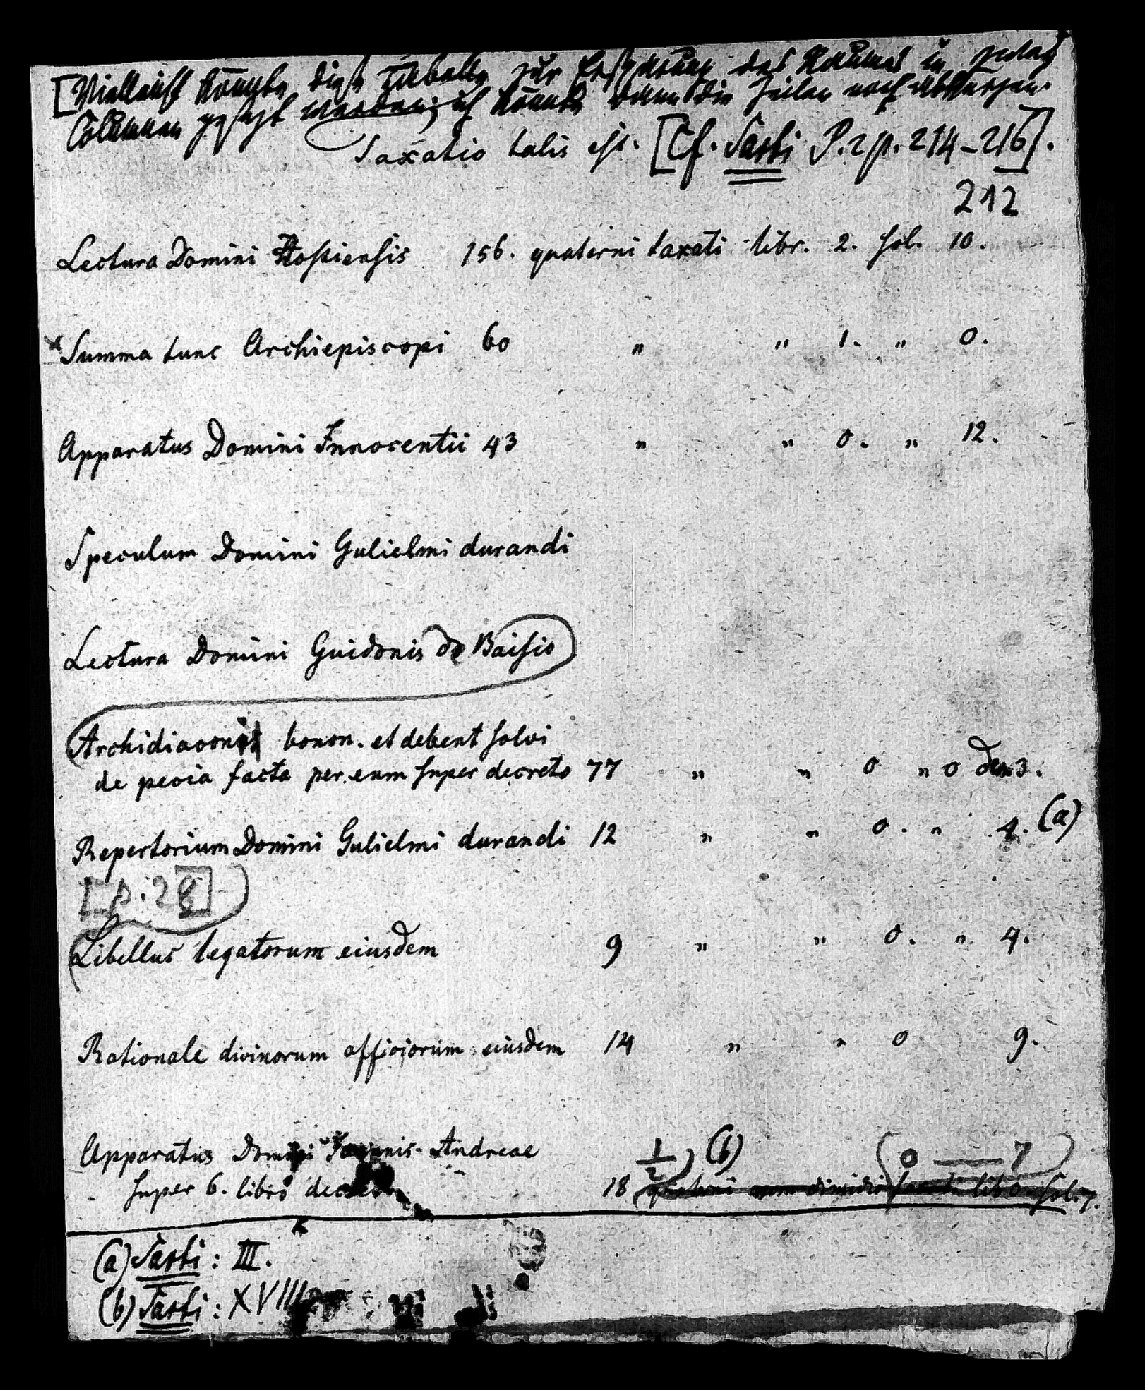 [Vielleicht könnte diese Tabelle zur Ersparung des Raumes in
Columnen gesetzt werden; ich könnte dann die Zeilen noch abkürzen.
Taxatio talis est. [Cf. Sarti P. 2 p. 214-216].
212
Lectura Domini Hostiensis 156. quaterni taxati libr. 2. sol. 10.
x Summa tunc Archiepiscopi 60 " " 1. " 0.
Apparatus Domini Innocentii 43 " " 0. " 12.
Speculum Domini Gulielmi durandi
Lectura Domini Guidonis de Baisio
Archidiaconi bonon. et debent solvi
de pecia facta per eum super decreto 77 " " 0 " 0 den 3.
Repertorium Domini Gulielmi durandi 12 " " 0. " 4. (a)
[p. 28]
Libellus legatorum eiusdem 9 " " 0. " 4.
Rationale divinorum officiorum eiusdem 14 " " 0 9.
Apparatus Domini Joannis Andreae 1/2) (b) (0 — 7)
super 6. libro 18 quaterni cum dimidio libr. 0 sol. 7.
(a) Sarti: III.
(b) Sarti: XVIII